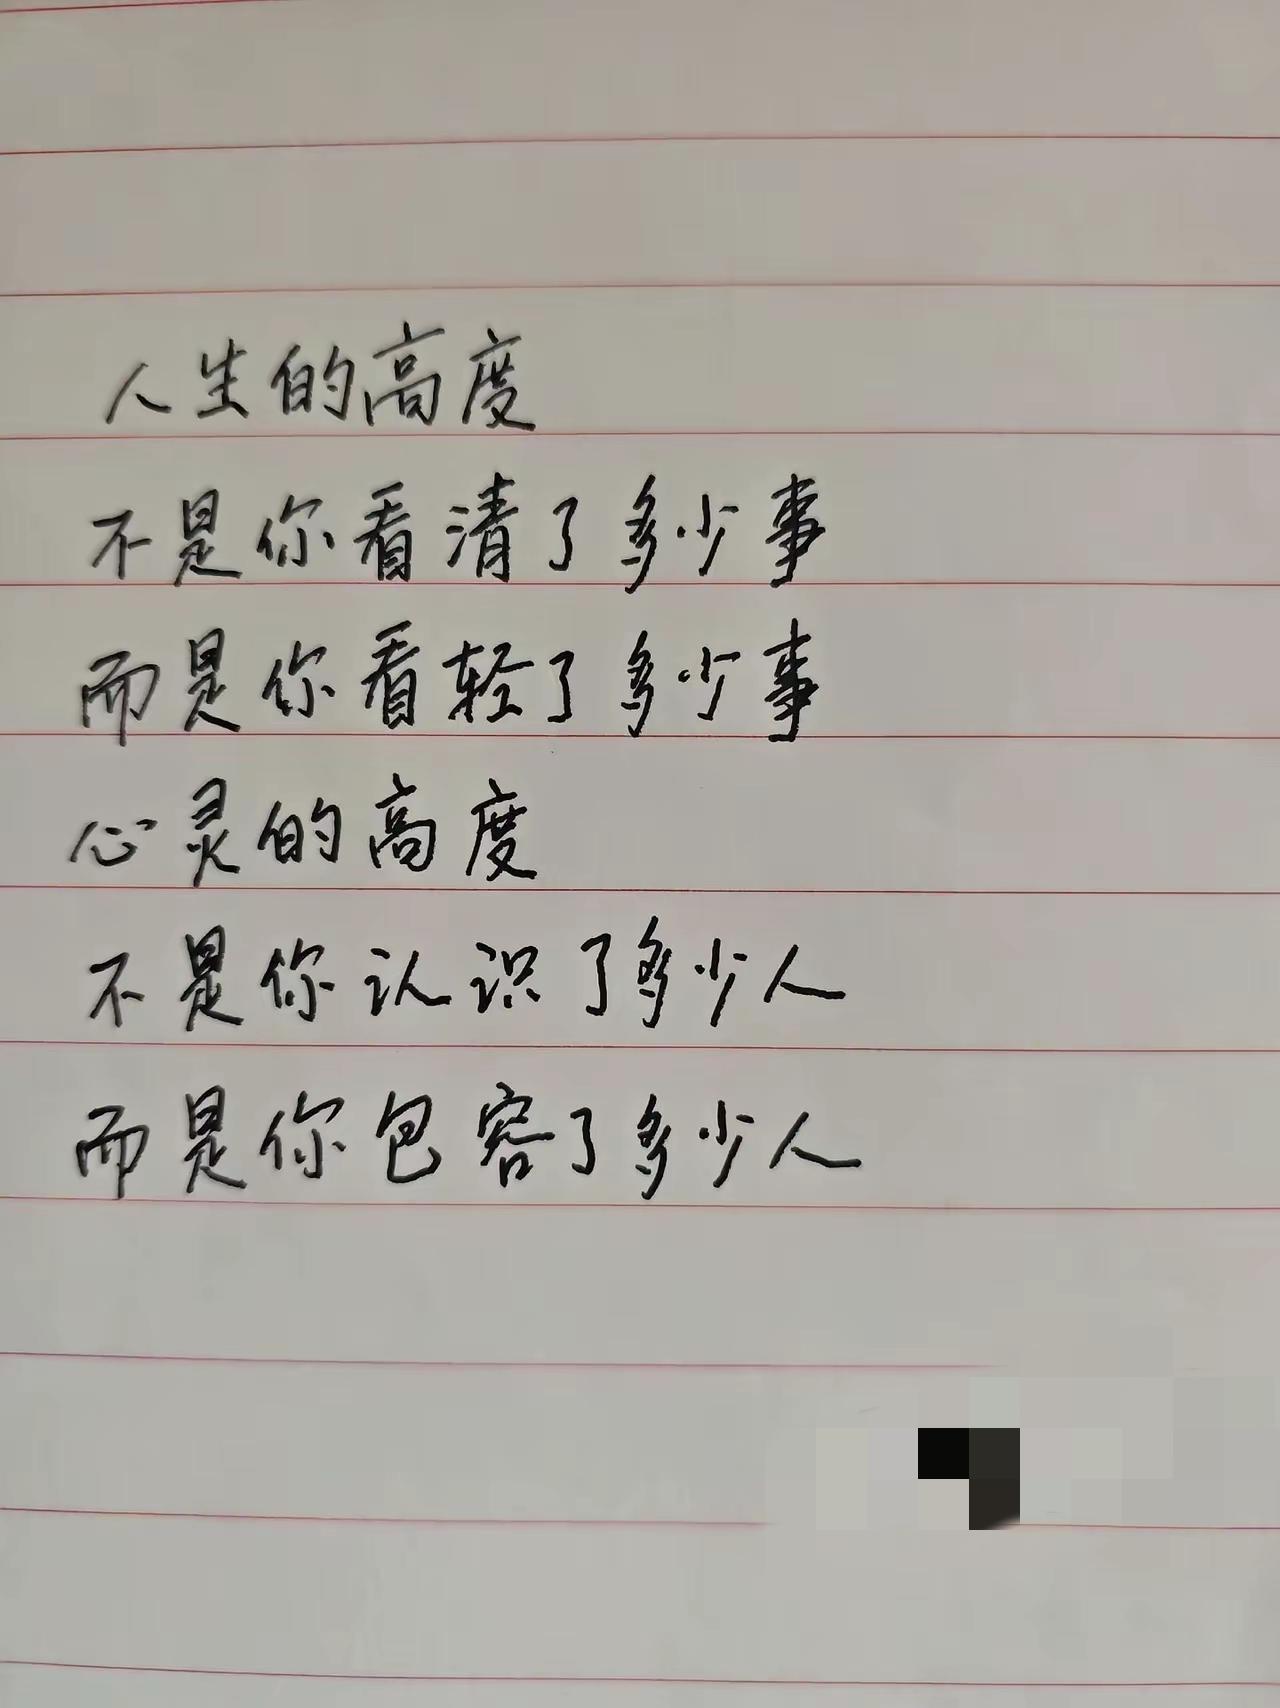 人生的高度
不是你看清了多少事
而是你看轻了多少事
心灵的高度
不是你认识了多少人
而是你包容了多少人